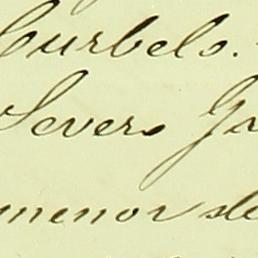 Curbelo.
Severo
menor de